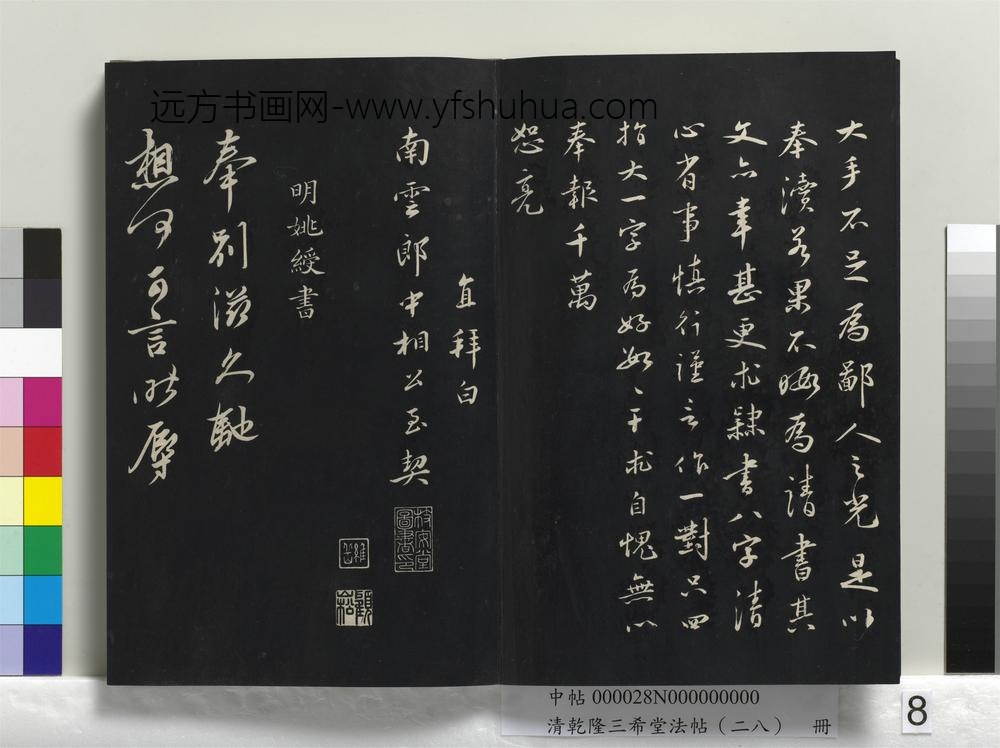 远方书画网-www.yfshuhua.com
大手不足為鄙人之光是以
奉瀆若果不暇為請書其
文亦幸甚更求隸書八字清
心省事慎行謹言作一對只四
指大一字為好數〻干求自愧無以
奉報千萬
恕亮
直拜白
南雲郎中相公至契
明姚綬書
奉別滋久馳
想何可言昨辱
中帖 000028N000000000
清乾隆三希堂法帖（二八） 冊
8